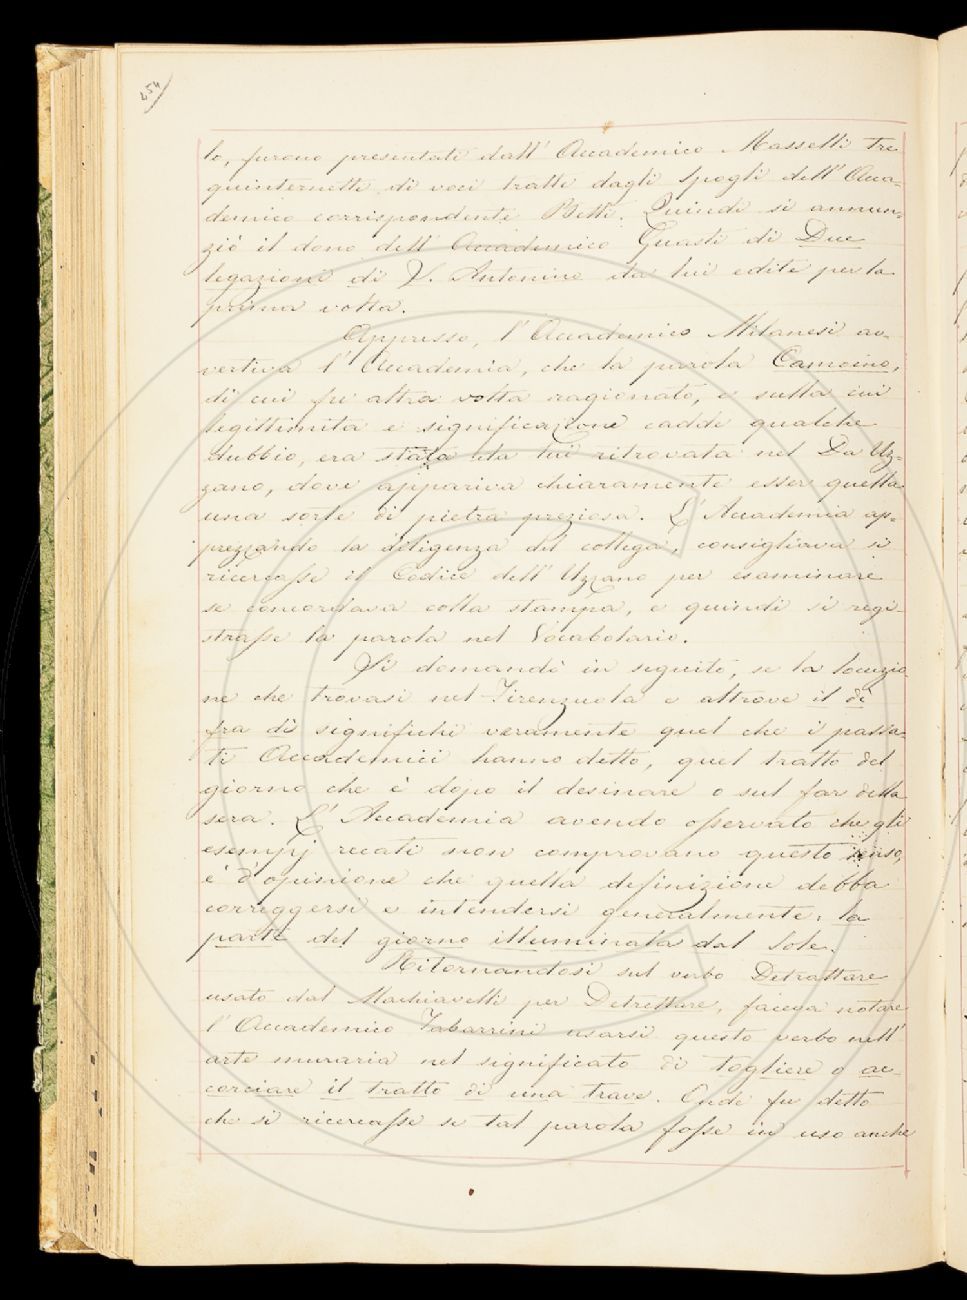 254
lo, furono presentati dall' Accademico Masselli tre
quinternetti di voci tratti dagli Spogli dell' Acca-
demico corrispondente Betti. Quindi si annun-
ziò il dono dell' Accademico Guasti di Due
legazioni di S. Antonino da lui edite per la
prima volta.
Appresso, l' Accademico Milanesi av-
vertiva l' Accademia, che la parola Camoino,
di cui fu altra volta ragionato, e sulla cui
legittimità e significazione cadde qualche
dubbio, era stata da lui ritrovata nel Da Uz-
zano, dove appariva chiaramente esser quella
una sorte di pietra preziosa. L' Accademia ap-
prezzando la diligenza del collega, consigliava si
ricercasse il Codice dell' Uzzano per esaminare
se concordava colla stampa, e quindi si regi-
strasse la parola nel Vocabolario.
Si domandò in seguito, se la locuzio-
ne che trovasi nel Firenzuola e altrove il dì
fra dì significhi veramente quel che i passa-
ti Accademici hanno detto, quel tratto del
giorno che è dopo il desinare o sul far della
sera. L' Accademia avendo osservato che gli
esempj recati non comprovano questo senso,
è d' opinione che quella definizione debba
correggersi e intendersi generalmente: la
parte del giorno illuminata dal Sole.
Ritornandosi sul verbo Detrattare
usato dal Machiavelli per Detrettare, faceva notare
l' Accademico Tabarrini usarsi questo verbo nell'
arte muraria nel significato di togliere o ac-
corciare il tratto di una trave. Onde fu detto
che si ricercasse se tal parola fosse in uso anche